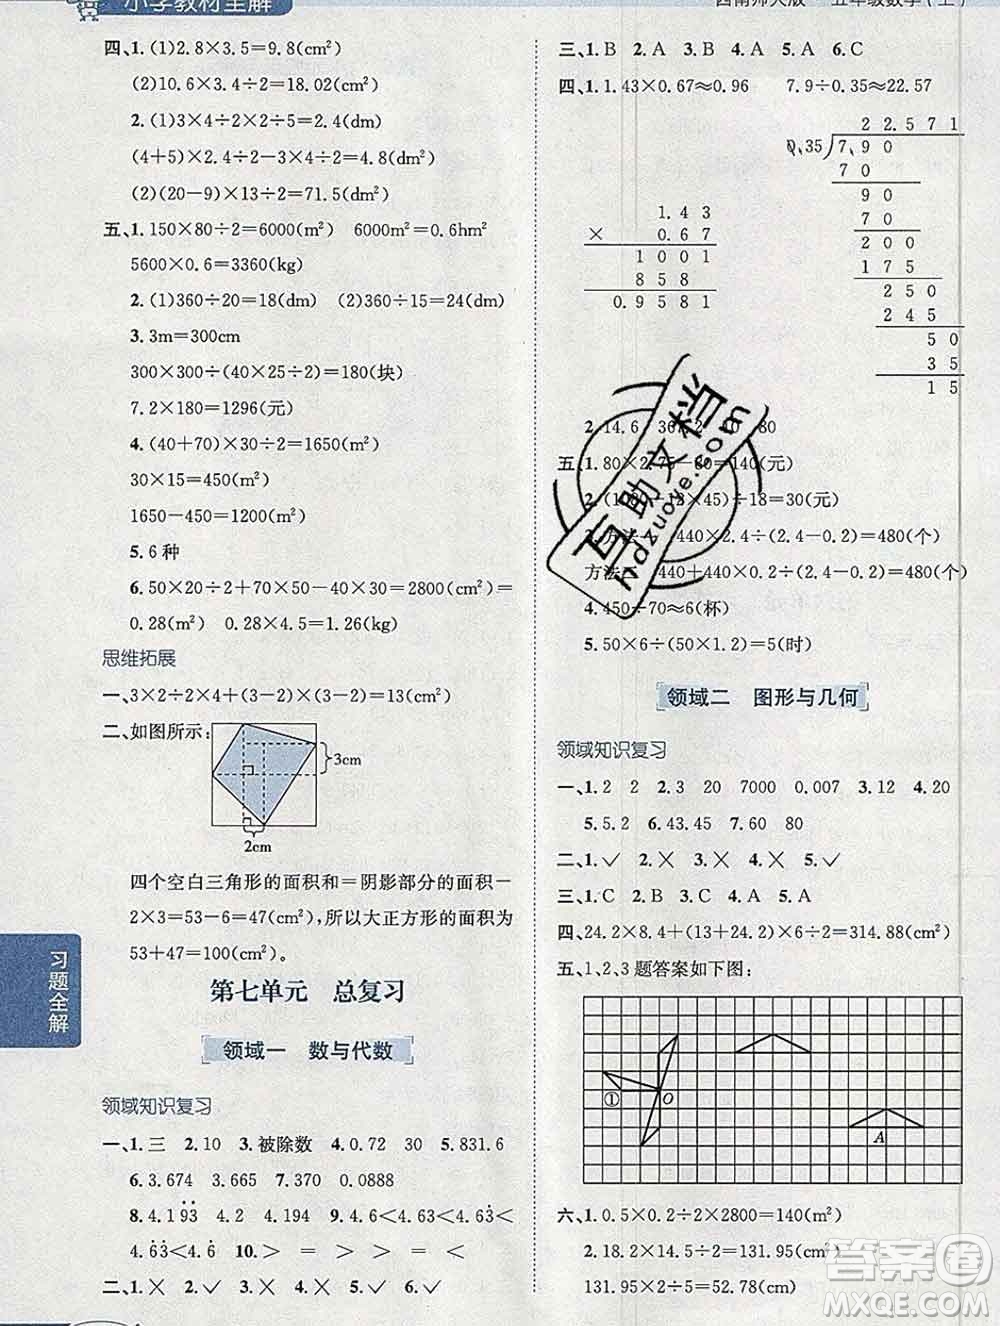 小学教材全解
西南师大版 五年级数学(上)
四、1. (1)2.8×3.5=9.8(cm²)
(2)10.6×3.4÷2=18.02(cm²)
2. (1)3×4÷2×2÷5=2.4(dm)
(4+5)×4÷2-3×4÷2÷5×4=4.8(dm)
(2)(20-9)×13÷2=71.5(dm²)
五、1. 150×80÷2=6000(m²) 6000m²=0.6hm²
5600×0.6=3360(kg)
2. (1)360÷20=18(dm) (2)360÷15=24(dm)
3. 3m=300cm
300×300÷(40×25÷2)=180(块)
7.2×180=1296(元)
4. (40+70)×30÷2=1650(m²)
30×15=450(m²)
1650-450=1200(m²)
5. 6种
6. 50×20÷2+70×50-40×30=2800(cm²)=
0.28(m²) 0.28×4.5=1.26(kg)
思维拓展
一、3×2÷2×4+(3-2)×(3-2)=13(cm²)
二、如图所示:
3cm
2cm
四个空白三角形的面积和=阴影部分的面积-
2×3=53-6=47(cm²),所以大正方形的面积为
53+47=100(cm²)。
习题全解
第七单元 总复习
领域一 数与代数
领域知识复习
一、1. 三 2. 10 3. 被除数 4. 0.72 30 5. 831.6
6. 3.674 3.665 7. 370 0.0888
8. 4.19̇3̇ 4.2 4.194 9. 4.6<4.63<4.63̇<
4.6̇3̇<4.6̇ 10. > = > > < =
二、1. × 2. ✓ 3. × 4. × 5. ✓
三、1. B 2. A 3. B 4. A 5. A 6. C
四、1. 1.43×0.67≈0.96 7.9÷0.35≈22.57
22.571
0.35 7.90
70
90
70
200
175
250
245
50
35
15
1.43
× 0.67
1001
858
0.9581
2. 14.6 367.2 80
五、1. 80×2.75-80=140(元)
÷18=30(元)
440×2.4÷(2.4-0.2)=480(个)
440+440×0.2÷(2.4-0.2)=480(个)
4. 450÷70≈6(杯)
5. 50×6÷(50×1.2)=5(时)
互助文档
hdzuoye.com
领域二 图形与几何
领域知识复习
一、1. 2 2 2. 3 20 7000 0.007 3. 12 4. 20
5. 5.2 6. 43.45 7. 60 80
二、1. ✓ 2. × 3. × 4. × 5. ✓
三、1. C 2. B 3. C 4. A 5. A
四、24.2×8.4+(13+24.2)×6÷2=314.88(cm²)
五、1,2,3题答案如下图:
① O
A
六、1. 0.5×0.2÷2×2800=140(m²)
2. 18.2×14.5÷2=131.95(cm²)
131.95×2÷5=52.78(cm)
答案圈
MXQE.COM